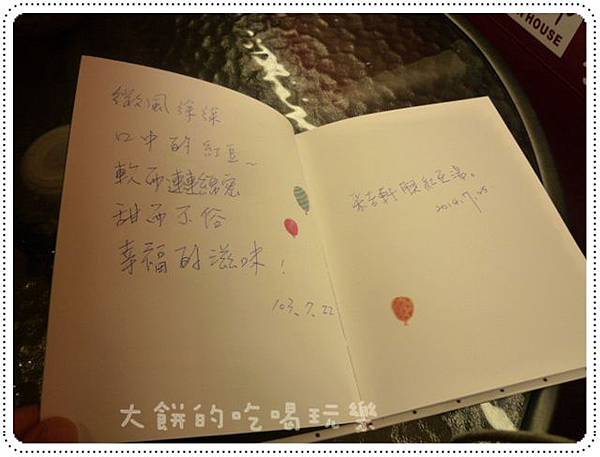 微風徐徐
口中的紅豆~
軟而連綿密
甜而不俗
幸福的滋味！
103.7.22
紅豆湯。
2014.7.25
HOUSE
大餅的吃喝玩樂